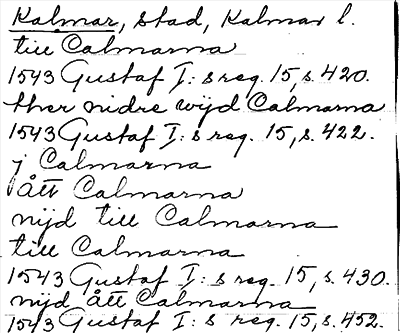 Kalmar, stad, Kalmar l.
till Calmarna
1543 Gustaf I: s reg. 15, s. 420.
ther nidre wijd Calmarna
1543 Gustaf I: s reg. 15, s. 422.
j Calmarna
ått Calmarna
nijd till Calmarna
till Calmarna
1543 Gustaf I: s reg. 15, s. 430.
nijd ått Calmarna
1543 Gustaf I: s reg. 15, s. 452.